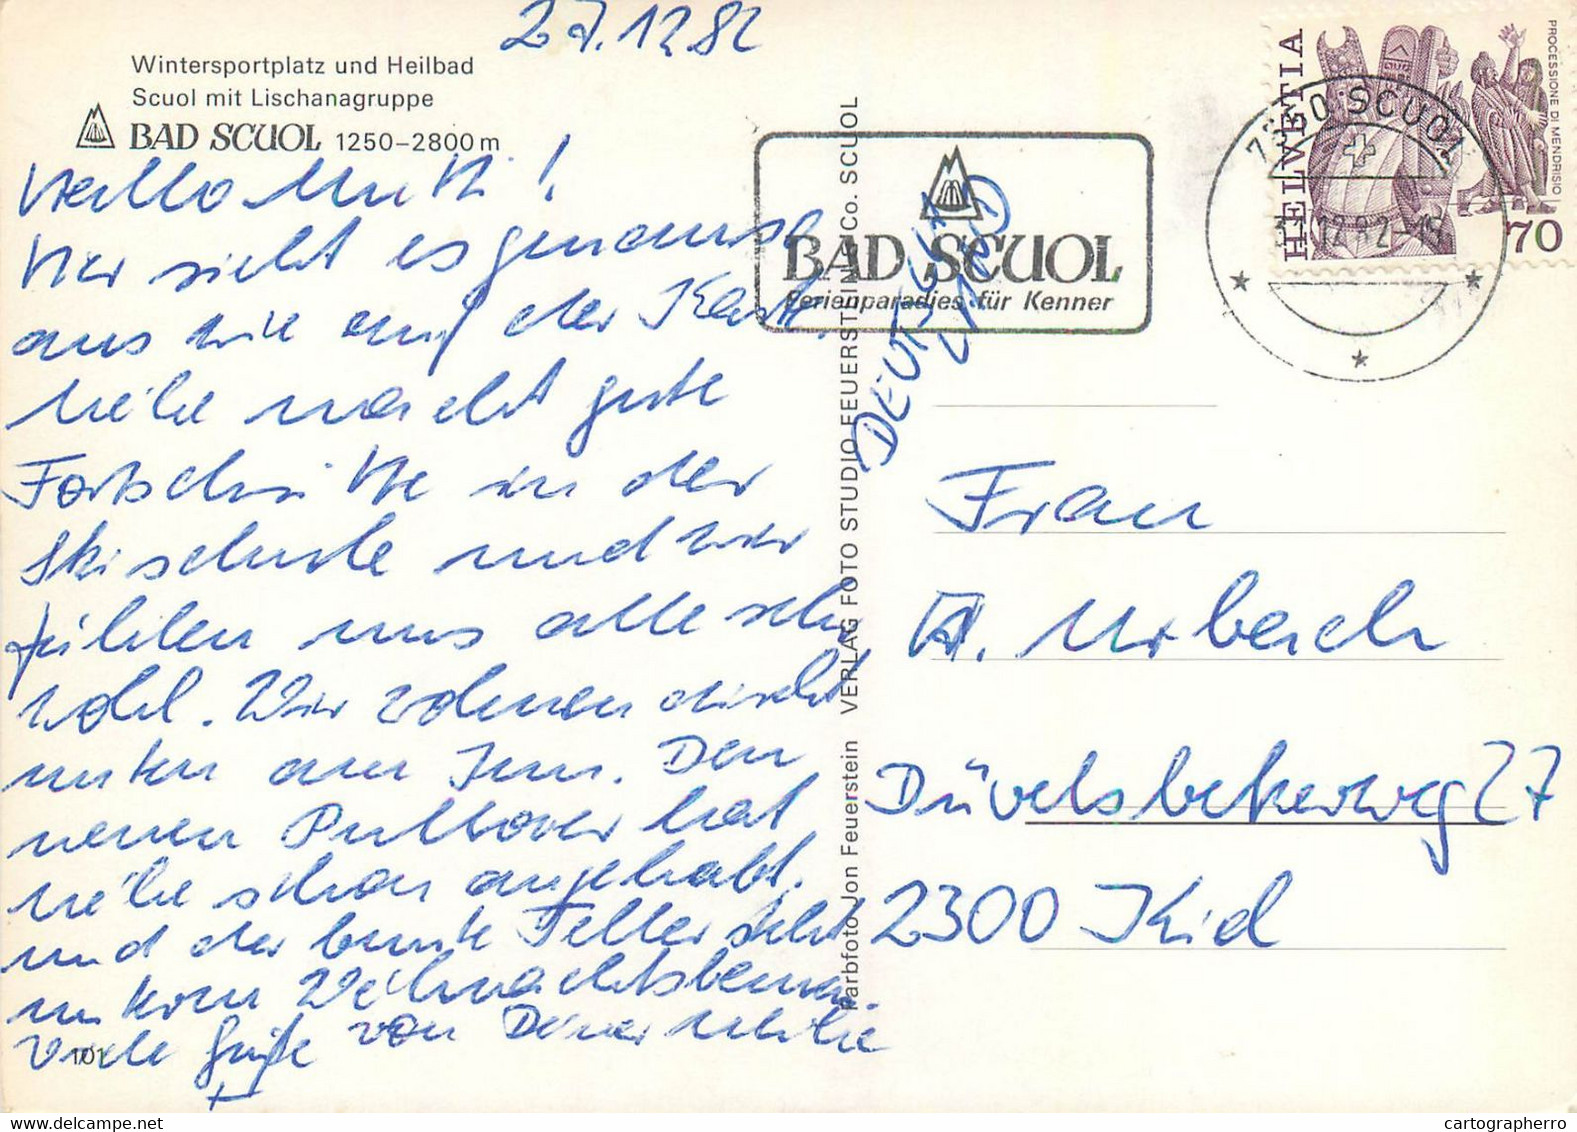 27.12.82
Wintersportplatz und Heilbad
Scuol mit Lischanagruppe
BAD SCUOL 1250–2800 m
Hallo Mutti!
Hier sieht es genauso
aus wie auf der Karte.
macht gute
Fortschritte in der
Skischule und wir
fühlen uns alle sehr
wohl. Wir wohnen direkt
unten am Inn. Den
neuen Pullover hat
schon angehabt.
und der bunte Teller steht
unterm Weihnachtsbaum.
Viele Grüße von Deiner
101
VERLAG FOTO STUDIO FEUERSTEIN & Co. SCUOL
Farbfoto Jon Feuerstein
BAD SCUOL
Ferienparadies für Kenner
DEUTSCH
LAND
7550 SCUOL
12.82-18
HELVETIA
PROCESSIONE DI MENDRISIO
70
Frau
A. Urbach
Düvelsbekerweg 27
2300 Kiel
cartographerro